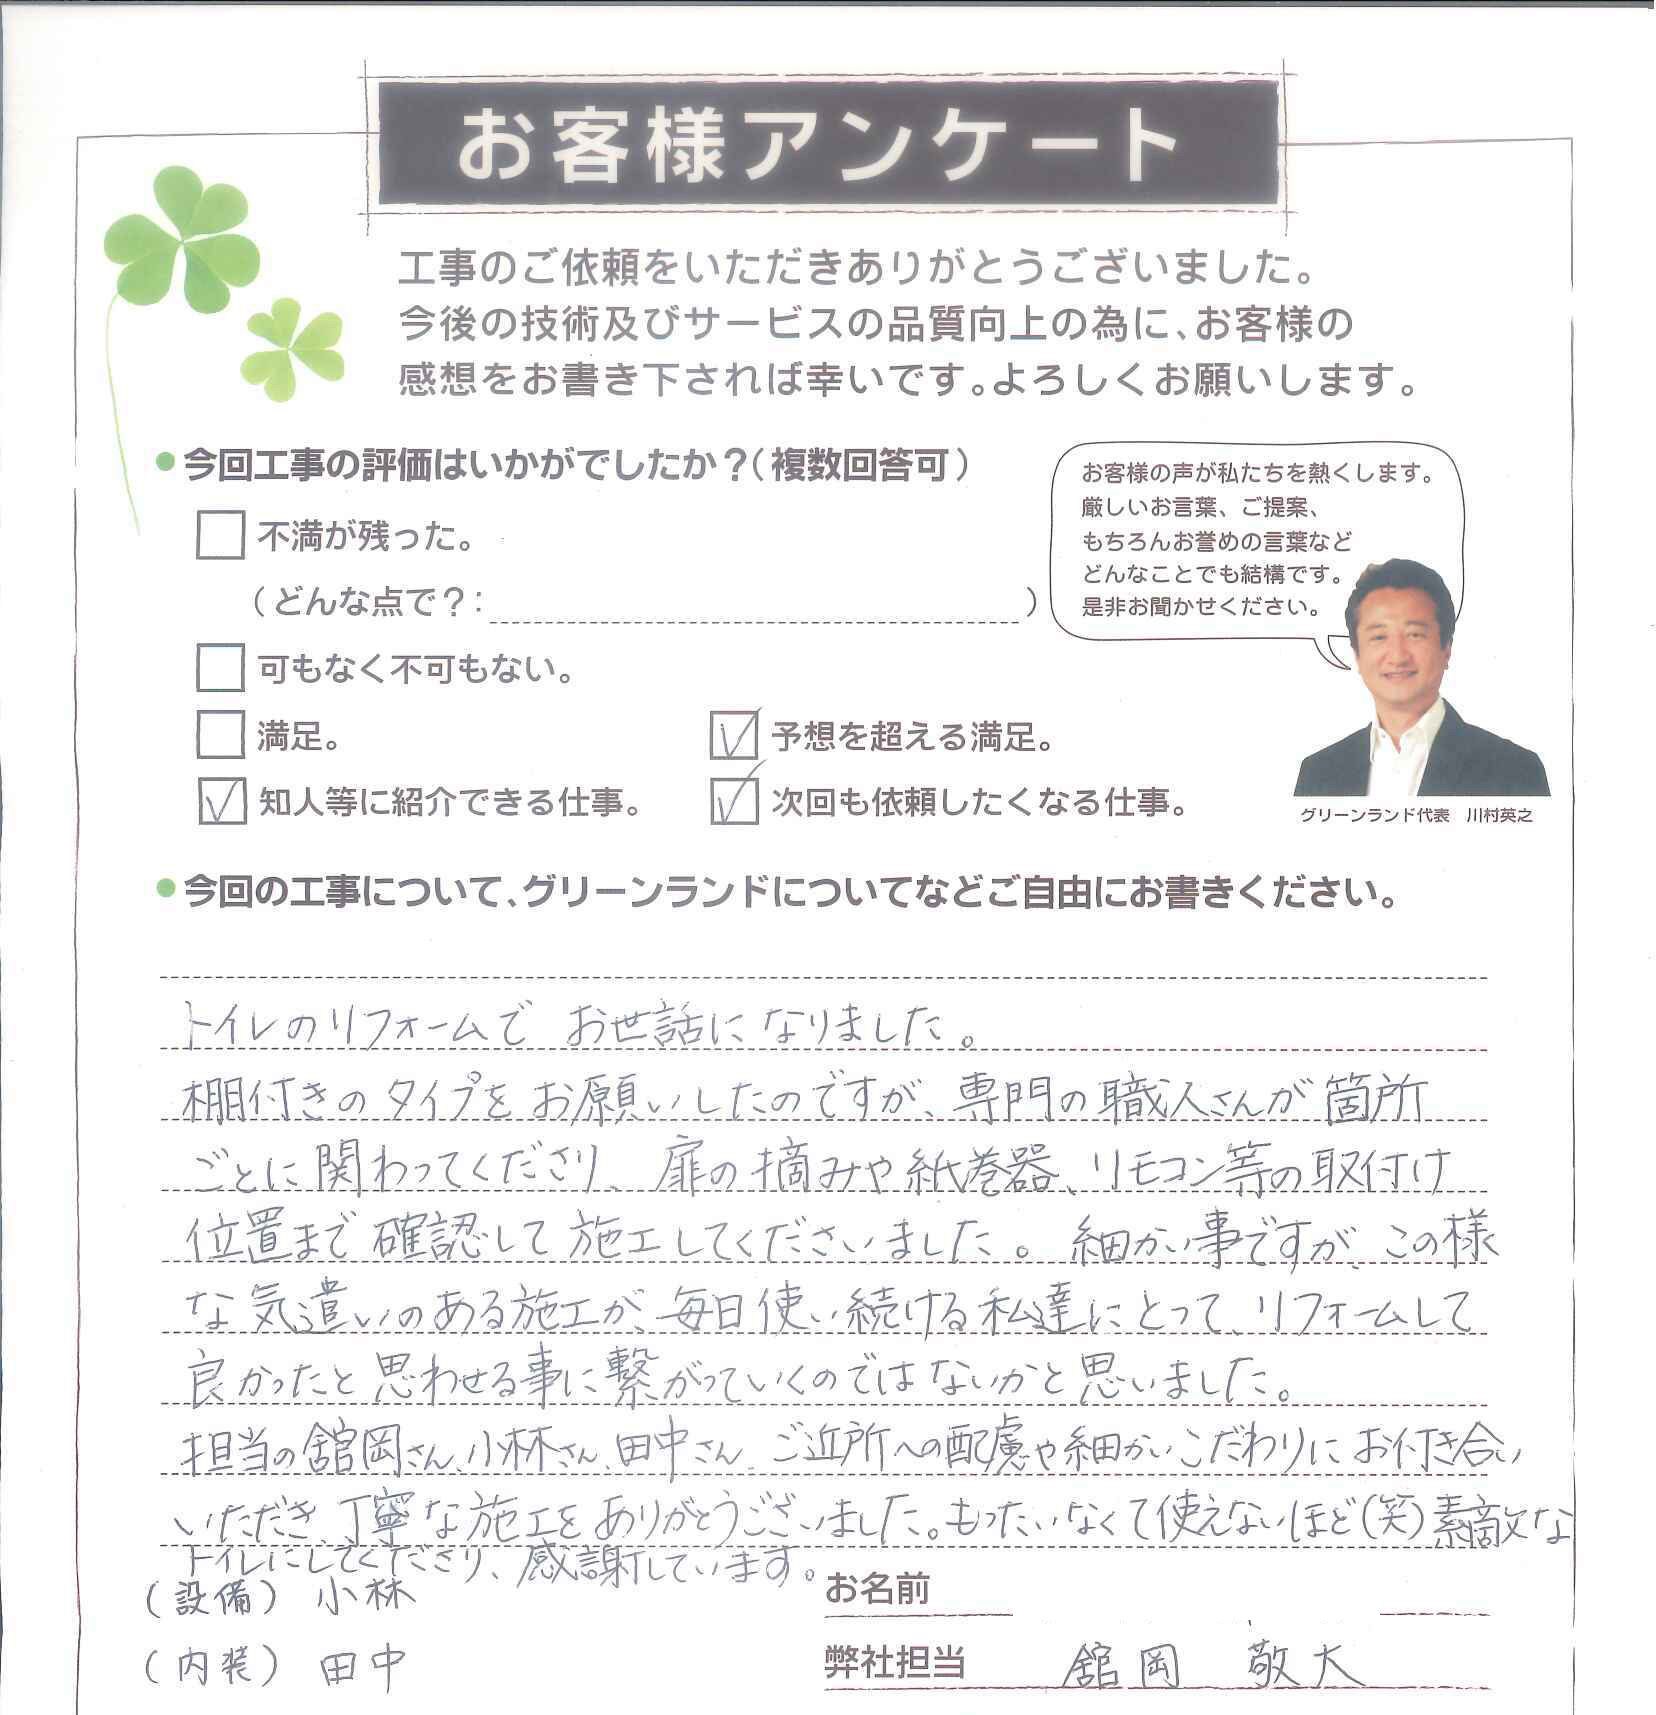 お客様アンケート
工事のご依頼をいただきありがとうございました。
今後の技術及びサービスの品質向上の為に、お客様の
感想をお書き下されば幸いです。よろしくお願いします。
●今回工事の評価はいかがでしたか？（複数回答可）
不満が残った。
（どんな点で？：　　　　）
可もなく不可もない。
満足。
予想を超える満足。
知人等に紹介できる仕事。
次回も依頼したくなる仕事。
お客様の声が私たちを熱くします。
厳しいお言葉、ご提案、
もちろんお誉めの言葉など
どんなことでも結構です。
是非お聞かせください。
グリーンランド代表　川村英之
●今回の工事について、グリーンランドについてなどご自由にお書きください。
トイレのリフォームで お世話になりました。
棚付きのタイプをお願いしたのですが、専門の職人さんが箇所
ごとに関わってくださり、扉の摘みや紙巻器、リモコン等の取付け
位置まで確認して施工してくださいました。細かい事ですが、この様
な気遣いのある施工が、毎日使い続ける私達にとって、リフォームして
良かったと思わせる事に繋がっていくのではないかと思いました。
担当の舘岡さん、小林さん、田中さん、ご近所への配慮や細かいこだわりにお付き合い
いただき、丁寧な施工をありがとうございました。もったいなくて使えないほど(笑)素敵な
トイレにしてくださり、感謝しています。
（設備） 小林
お名前
（内装） 田中
弊社担当　舘岡　敬大